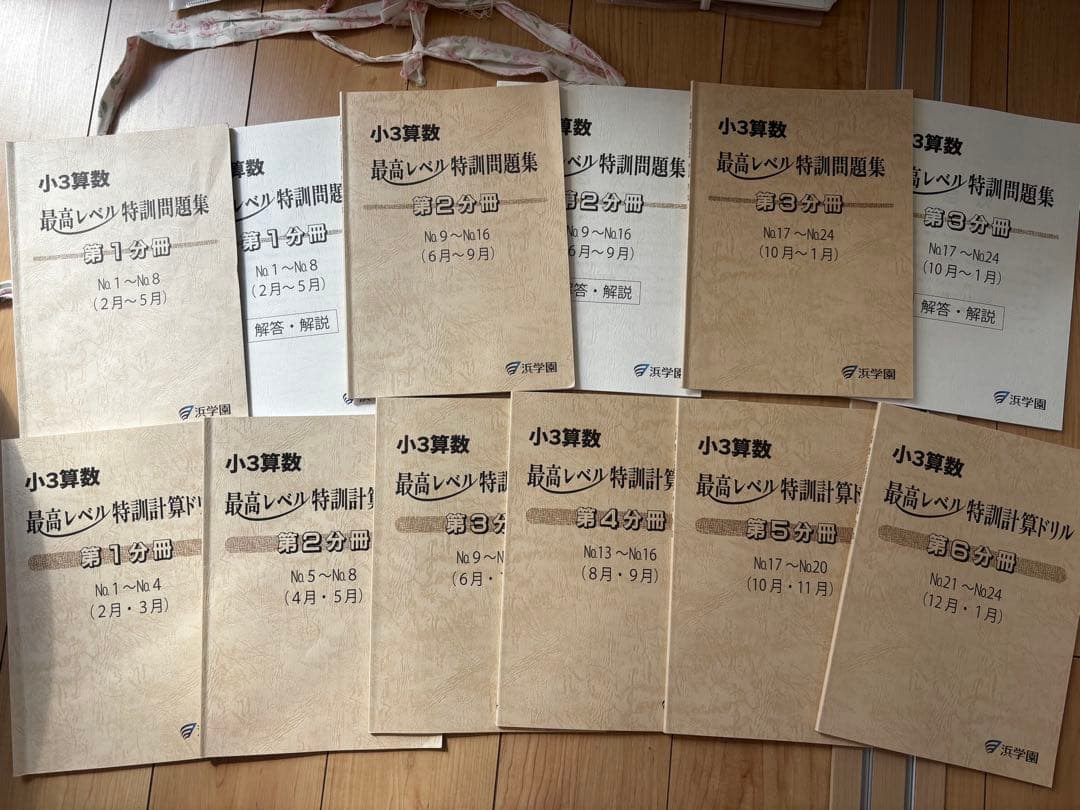 小3算数
最高レベル特訓問題集
第1分冊
№1～№8
(2月～5月)
浜学園
特訓問題集
第1分冊
№1～№8
(2月～5月)
解答・解説
小3算数
最高レベル特訓問題集
第2分冊
№9～№16
(6月～9月)
浜学園
算数
ベル特訓問題集
第2分冊
№9～№16
6月～9月)
答・解説
浜学園
小3算数
最高レベル特訓問題集
第3分冊
№17～№24
(10月～1月)
浜学園
3算数
レベル特訓問題集
第3分冊
№17～№24
(10月～1月)
解答・解説
浜学園
小3算数
最高レベル特訓計算ドリ
第1分冊
№1～№4
(2月・3月)
小3算数
最高レベル特訓計算
第2分冊
№5～№8
(4月・5月)
小3算数
最高レベル特訓
第3分
№9～№
(6月・
小3算数
最高レベル特訓計算
第4分冊
№13～№16
(8月・9月)
小3算数
最高レベル特訓計算ド
第5分冊
№17～№20
(10月・11月)
小3算数
最高レベル特訓計算ドリル
第6分冊
№21～№24
(12月・1月)
浜学園